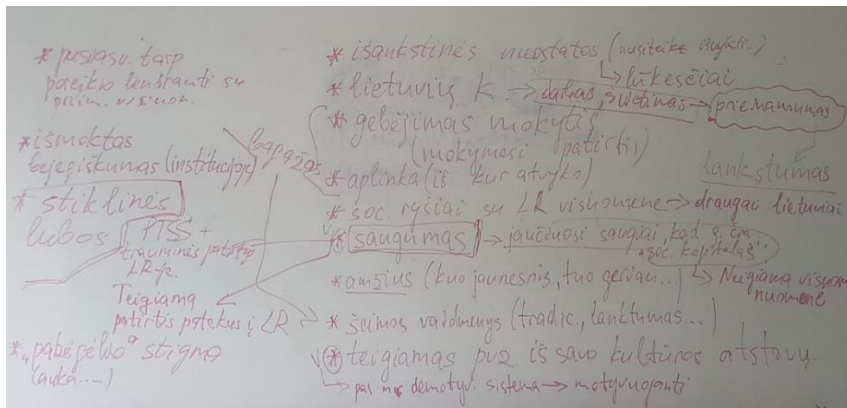 * pusiasv. tarp
poreikio bendrauti su
priim. visuom.
* išmoktas
bejėgiškumas (institucijoje)
* stiklinės
lubos
PTSS +
trauminės patirtys
LR-je.
Teigiama
patirtis patekus į LR
* „pabėgėlio“ stigma
(auka....)
bagažas
* išankstinės nuostatos (nusiteikę išvykti..)
→ lūkesčiai
* lietuvių k → darbas, švietimas → priėmamumas
* gebėjimas mokytis
(mokymosi patirtis)
lankstumas
* aplinka (iš kur atvyko)
* soc. ryšiai su LR visuomene → draugai lietuviai
* saugumas → jaučiuosi saugiai, kad g. čia
„soc. kapitalas“
* amžius (kuo jaunesnis, tuo geriau...) → Neigiama visuom
nuomonė
* šeimos vaidmenys (tradic., lankstumas...)
* teigiamas pvz. iš savo kultūros atstovų.
→ pas mus demotyv. sistema → motyvuojanti